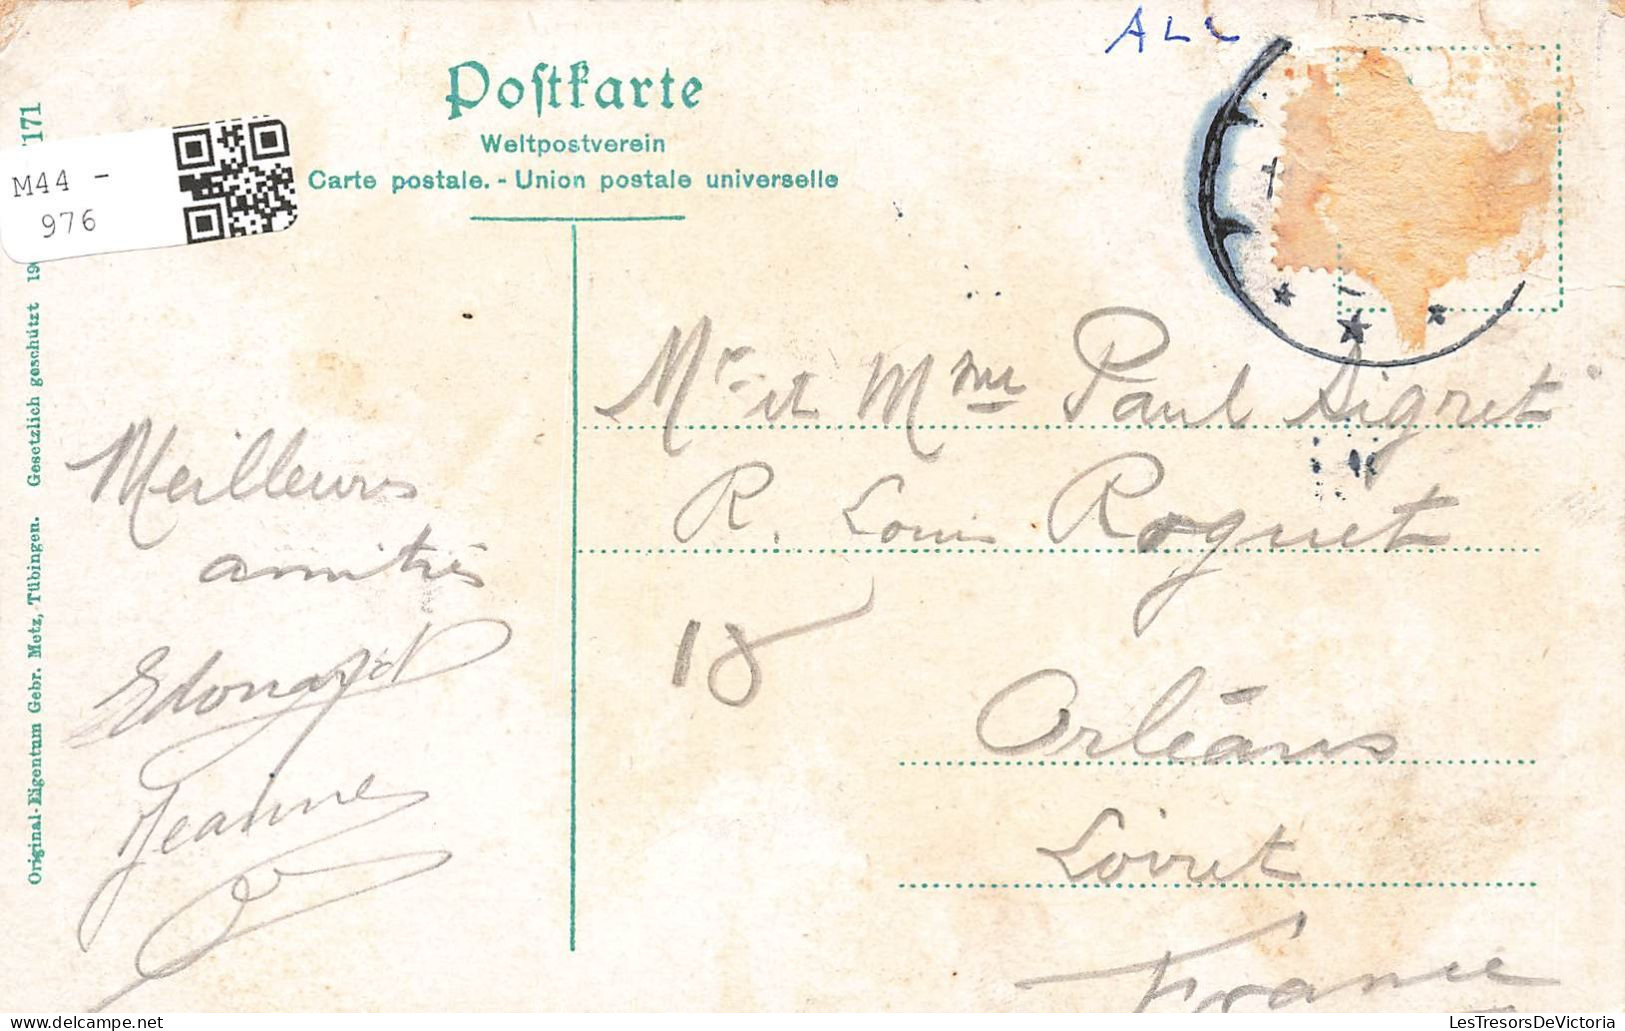 ALL
Postkarte
Weltpostverein
Carte postale. - Union postale universelle
M44 -
976
Original-Eigentum Gebr. Metz, Tübingen. Gesetzlich geschützt 19
171
Meilleures
amitiés
Edouard
Jeanne
Mr et Mme Paul Sigret
R. Louis Roguet
18
Orléans
Loiret
France
LesTresorsDeVictoria